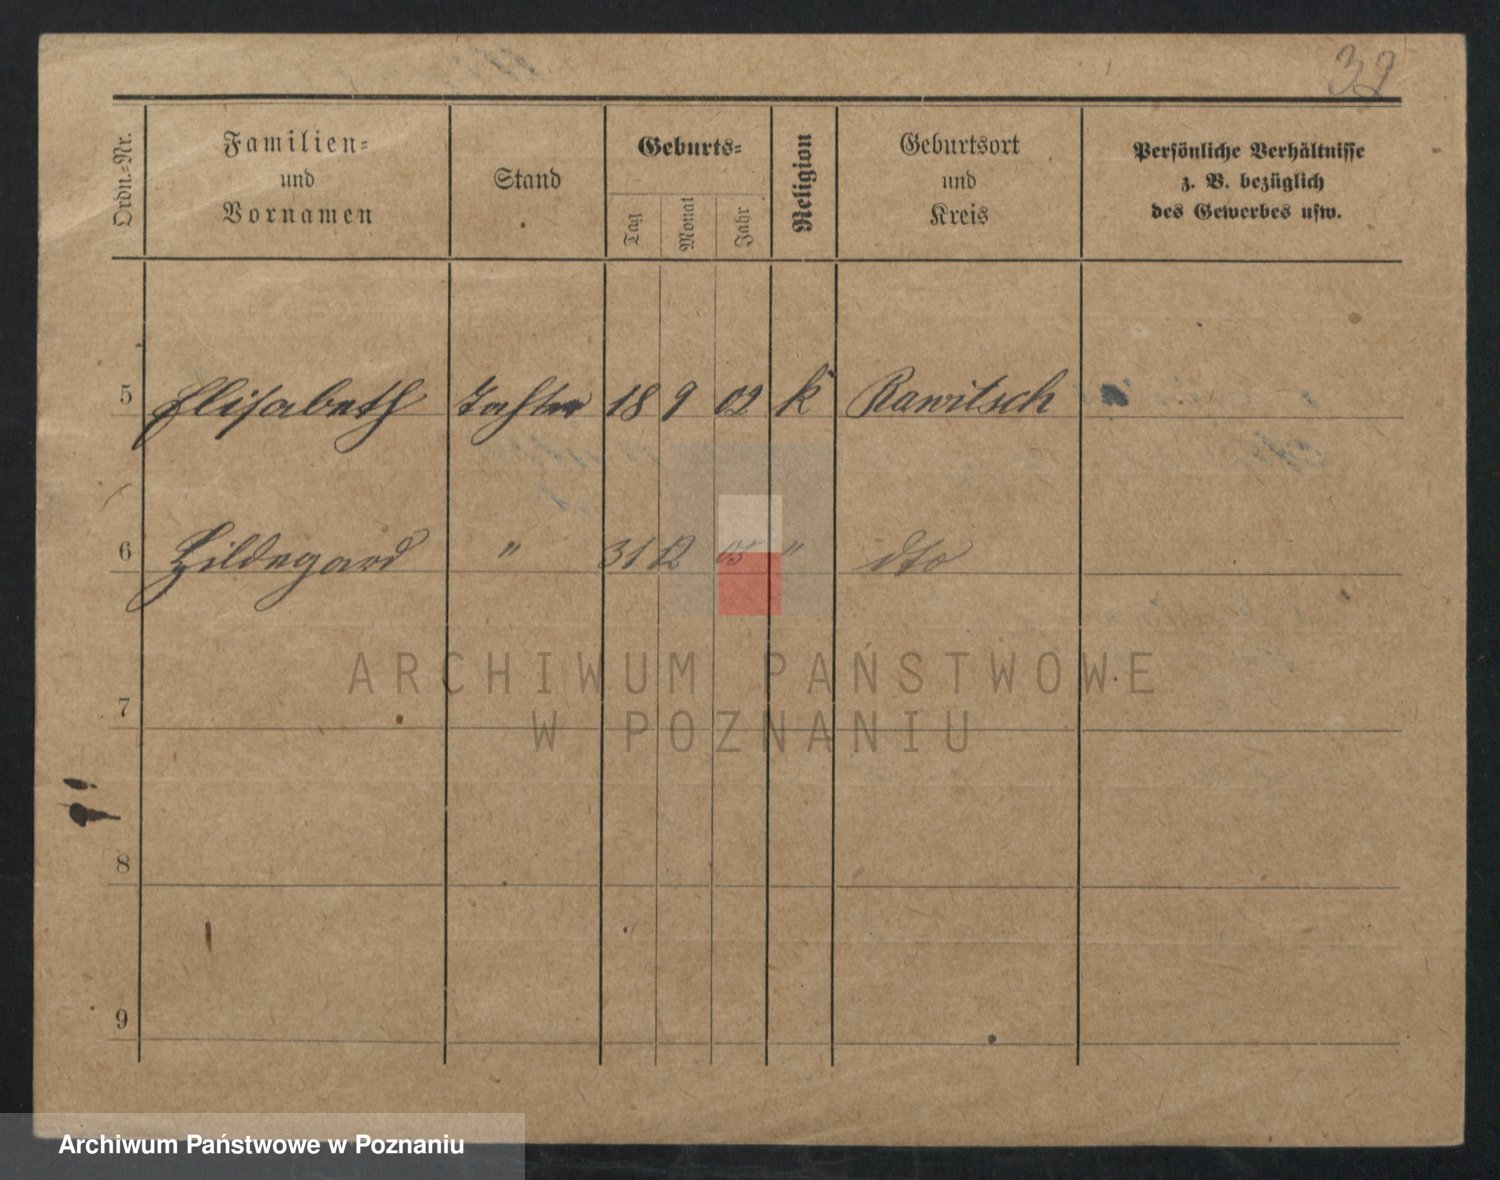 32
Ordn.-Nr.
Familien-
und
Vornamen
Stand
Geburts-
Tag
Monat
Jahr
Religion
Geburtsort
und
Kreis
Persönliche Verhältnisse
z. B. bezüglich
des Gewerbes usw.
5 Elisabeth Tochter 18 9 02 k Rawitsch
6 Hildegard " 31 12 05 " dto
ARCHIWUM PAŃSTWOWE
W POZNANIU
7
8
9
Archiwum Państwowe w Poznaniu